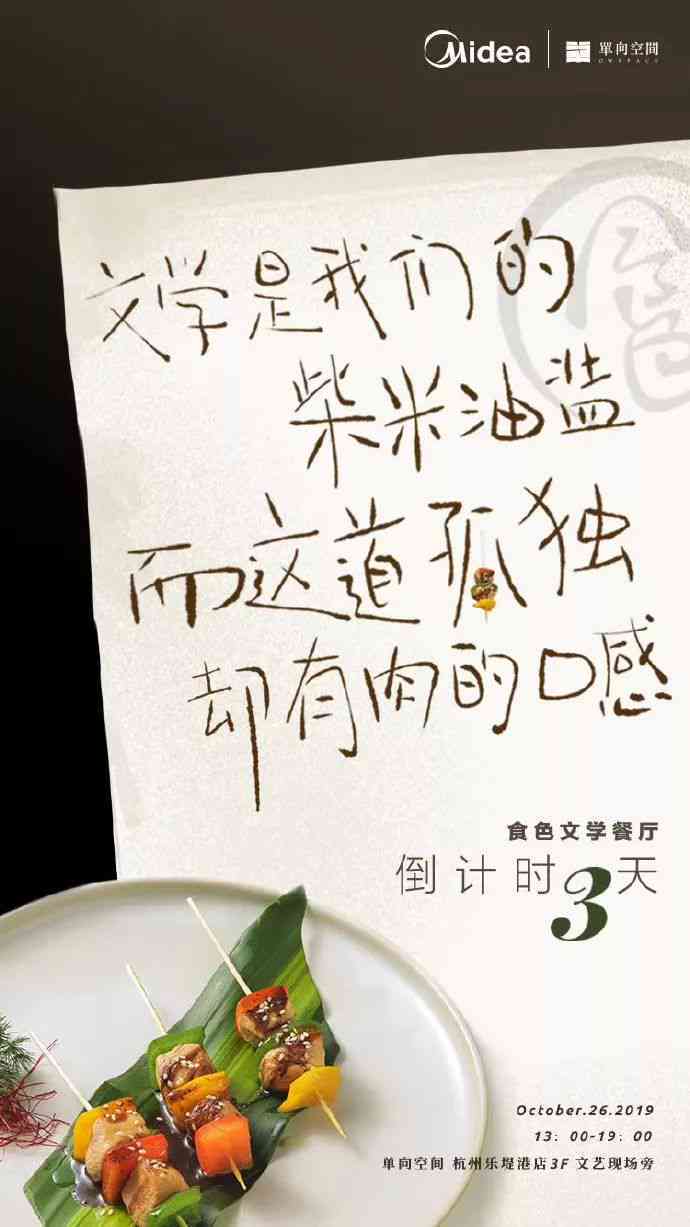 Midea 單向空間
OWSPACE
文学是我们的
柴米油盐
而这道孤独
却有肉的口感
食色文学餐厅
倒计时3天
October.26.2019
13：00-19：00
单向空间 杭州乐堤港店3F 文艺现场旁